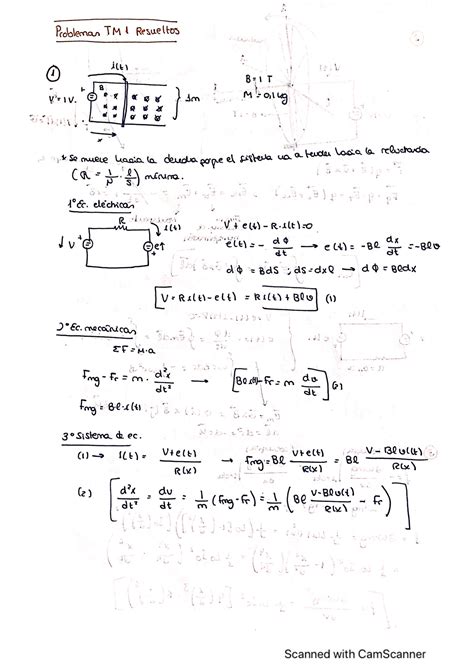 Problemas TM1 Resueltos
①
i(t)
B = 1 T
M = 0,1 kg
V = 1V.
B
1m
x
* Se mueve hacia la derecha porque el sistema va a tender hacia la reluctancia
(R = 1/μ · l/S) mínima.
1º Ec. eléctricas
R i(t)
V e↑
V + e(t) - R·i(t) = 0
e(t) = - dΦ/dt → e(t) = -Bl dx/dt = -Blv
dΦ = BdS ; dS = dxl → dΦ = Bldx
V = Ri(t) - e(t) = Ri(t) + Blv (1)
2º Ec. mecánicas
ΣF = M·a
Fmg - Fr = m · d²x/dt² → [Bl i(t) - Fr = m dv/dt] (2)
Fmg = Bl·i(t)
3º Sistema de ec.
(1) → i(t) = V+e(t)/R(x) → Fmg = Bl V+e(t)/R(x) = Bl V-Blv(t)/R(x)
(2) [d²x/dt² = dv/dt = 1/m (Fmg - Fr) = 1/m (Bl V-Blv(t)/R(x) - Fr)]
Scanned with CamScanner